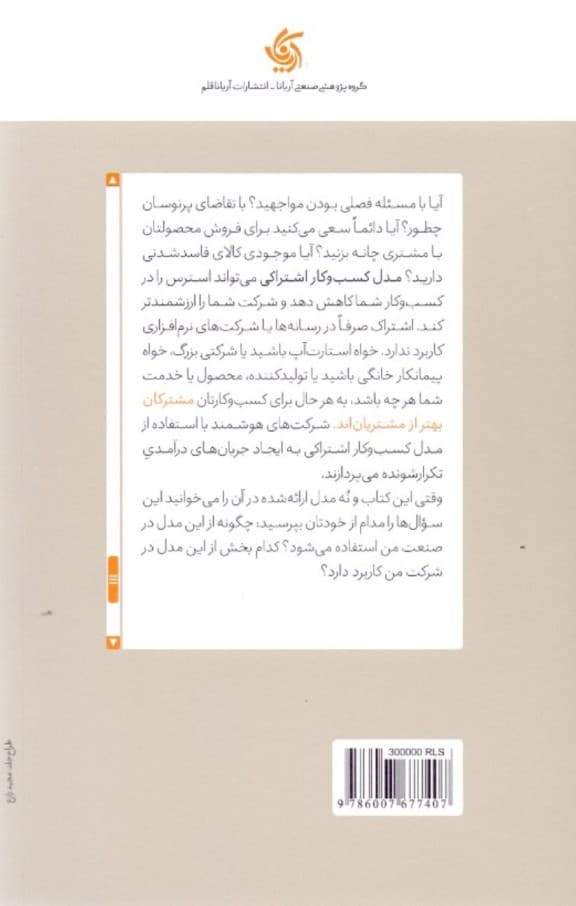 آریانا
گروه پژوهشی صنعتی آریانا - انتشارات آریاناقلم
آیا با مسئله فصلی بودن مواجهید؟ با تقاضای پرنوسان
چطور؟ آیا دائماً سعی می‌کنید برای فروش محصولتان
با مشتری چانه بزنید؟ آیا موجودی کالای فاسدشدنی
دارید؟ مدل کسب‌وکار اشتراکی می‌تواند استرس را در
کسب‌وکار شما کاهش دهد و شرکت شما را ارزشمندتر
کند. اشتراک صرفاً در رسانه‌ها یا شرکت‌های نرم‌افزاری
کاربرد ندارد. خواه استارت‌آپ باشید یا شرکتی بزرگ، خواه
پیمانکار خانگی باشید یا تولیدکننده، محصول یا خدمت
شما هر چه باشد، به هر حال برای کسب‌وکارتان مشترکان
بهتر از مشتریان‌اند. شرکت‌های هوشمند با استفاده از
مدل کسب‌وکار اشتراکی به ایجاد جریان‌های درآمدیِ
تکرارشونده می‌پردازند.
وقتی این کتاب و نُه مدل ارائه‌شده در آن را می‌خوانید این
سؤال‌ها را مدام از خودتان بپرسید: چگونه از این مدل در
صنعت من استفاده می‌شود؟ کدام بخش از این مدل در
شرکت من کاربرد دارد؟
300000 RLS
9 786007 677407
طراح جلد: مجید زارع